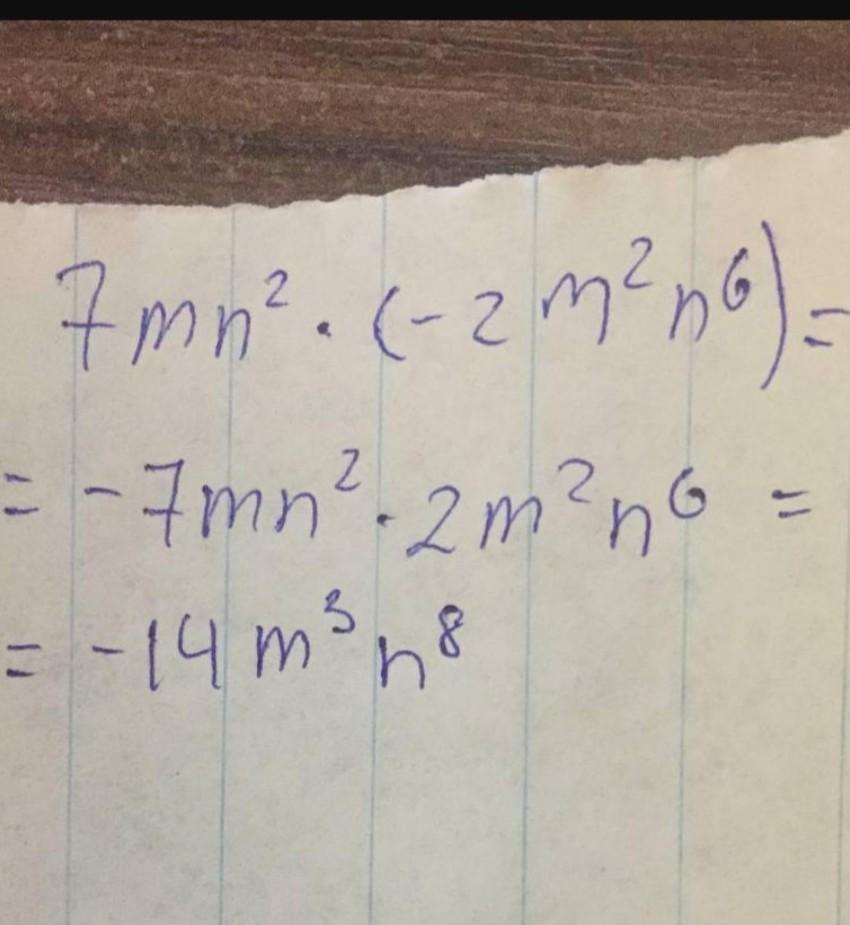 7mn² · (-2m²n⁶) =
= -7mn² · 2m²n⁶ =
= -14m³n⁸